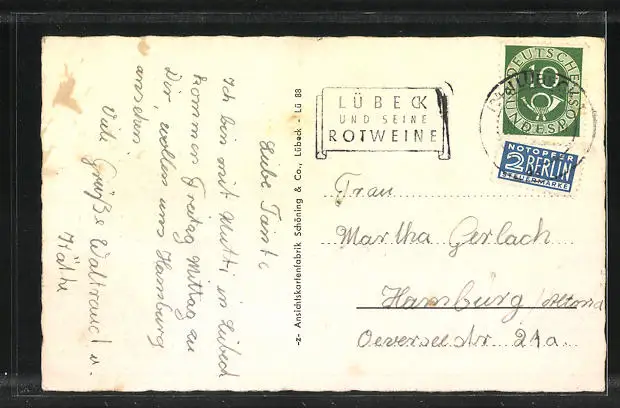 Liebe Tante
Ich bin mit Mutti in Lübeck
kommen Freitag Mittag zu
Dir, wollen uns Hamburg
ansehen
Viele Grüße Waltraud u.
Käthe
-z- Ansichtskartenfabrik Schöning & Co., Lübeck - Lü 88
LÜBECK
UND SEINE
ROTWEINE
DEUTSCHE
10
BUNDESPOST
NOTOPFER
2 BERLIN
STEUERMARKE
Frau
Martha Gerlach
Hamburg / Altona
Oeverseestr. 21a.